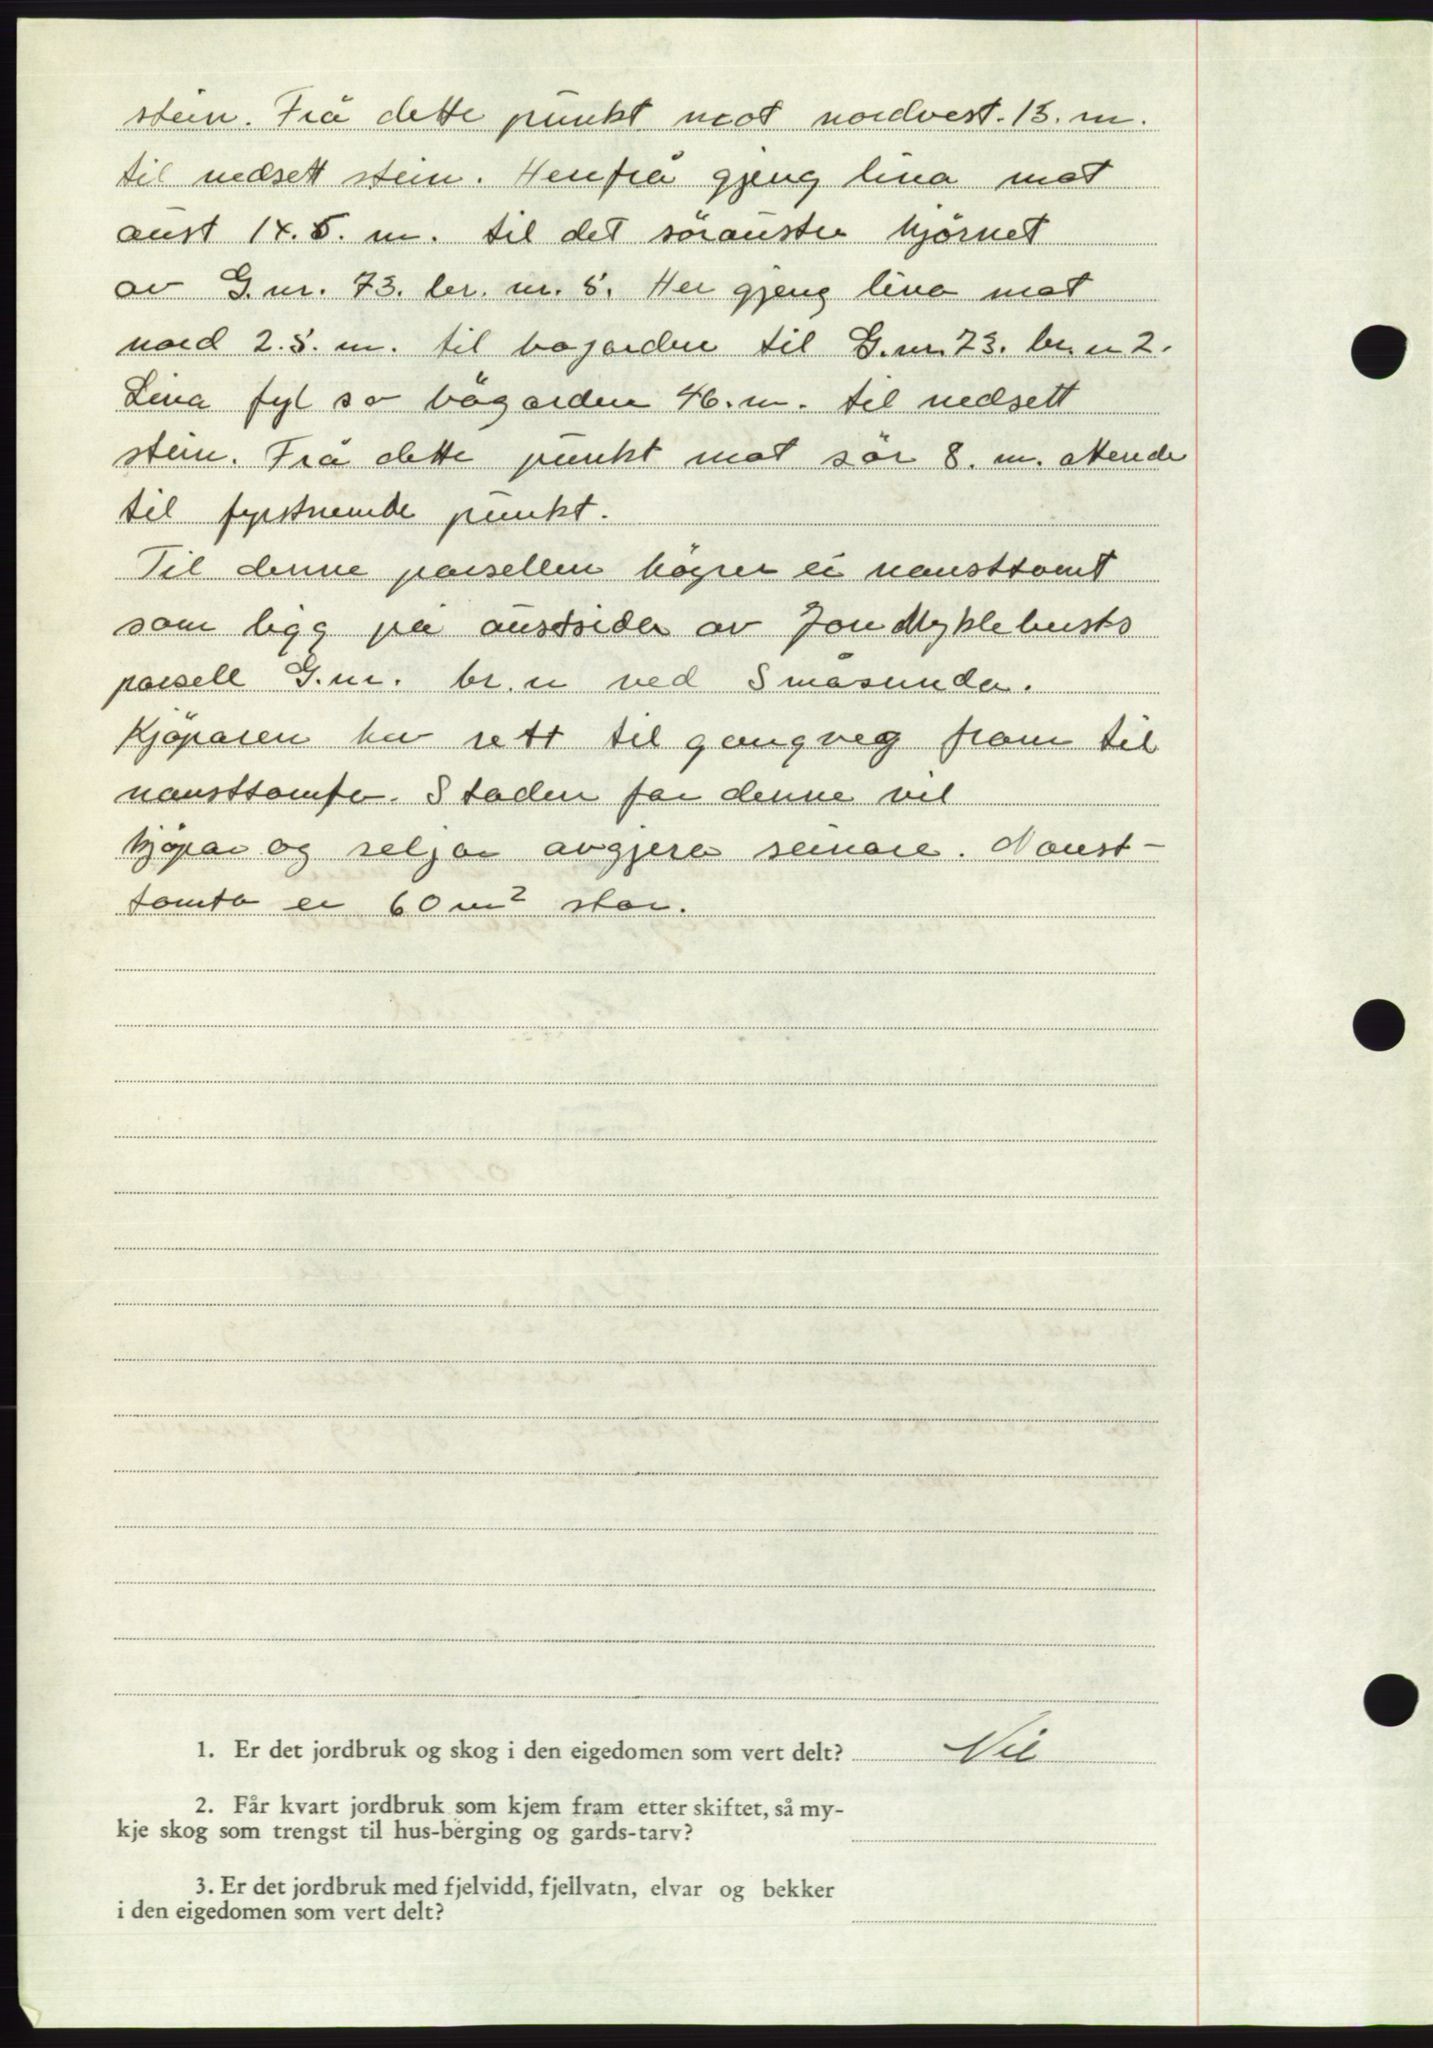 stein. Frå dette punkt mot nordvest. 13. m.
til nedsett stein. Herifrå gjeng lina mot
aust 14.5. m. til det søraustre hjörnet
av G.nr. 73. br. nr. 5. Her gjeng lina mot
nord 2.5. m. til bøgarden til G.nr. 73. br.n 2.
Lina fyl so bögarden 46. m. til nedsett
stein. Frå dette punkt mot sör 8. m. attende
til fyrstnemde punkt.
Til denne parsellen höyrer ei nausttomt
som ligg på austsida av Jon Myklebusts
parsell G.nr. br.n ved Småsunda.
Kjöparen har rett til gangveg fram til
nausttomta. Staden for denne vil
kjöpar og seljar avgjera seinare. Naust-
tomta er 60 m² stor.
1. Er det jordbruk og skog i den eigedomen som vert delt? Nil
2. Får kvart jordbruk som kjem fram etter skiftet, så my-
kje skog som trengst til hus-berging og gards-tarv?
3. Er det jordbruk med fjelvidd, fjellvatn, elvar og bekker
i den eigedomen som vert delt?